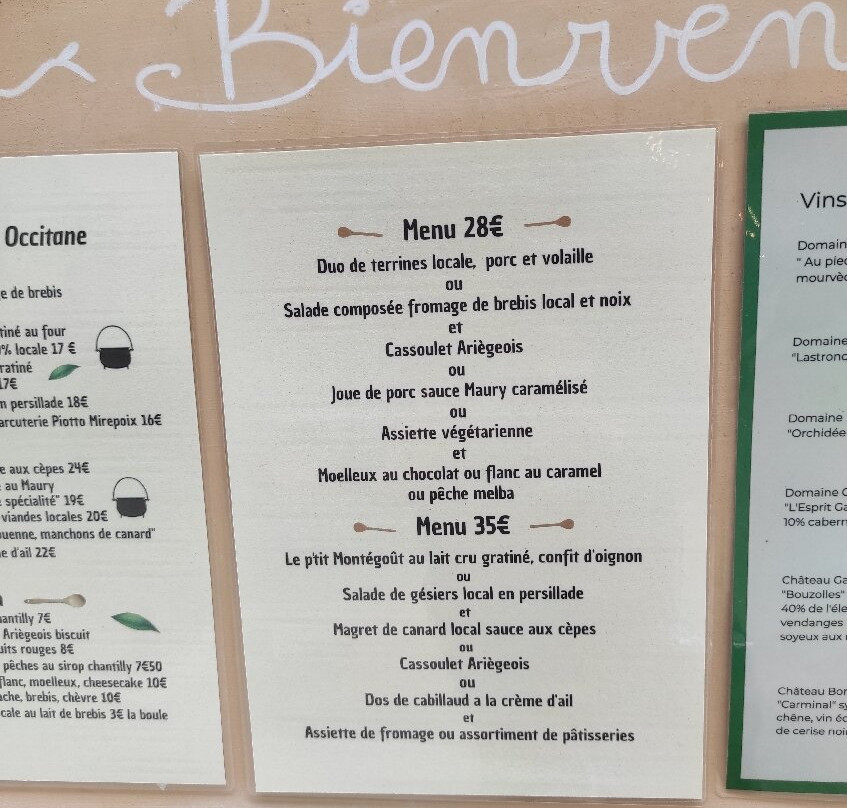 Bienven
Occitane
e de brebis
tiné au four
% locale 17 €
ratiné
17€
n persillade 18€
arcuterie Piotto Mirepoix 16€
e aux cèpes 24€
au Maury
spécialité" 19€
viandes locales 20€
ouenne, manchons de canard"
e d'ail 22€
antilly 7€
Ariègeois biscuit
uits rouges 8€
pêches au sirop chantilly 7€50
flanc, moelleux, cheesecake 10€
ache, brebis, chèvre 10€
cale au lait de brebis 3€ la boule
Menu 28€
Duo de terrines locale, porc et volaille
ou
Salade composée fromage de brebis local et noix
et
Cassoulet Ariègeois
ou
Joue de porc sauce Maury caramélisé
ou
Assiette végétarienne
et
Moelleux au chocolat ou flanc au caramel
ou pêche melba
Menu 35€
Le p'tit Montégoût au lait cru gratiné, confit d'oignon
ou
Salade de gésiers local en persillade
et
Magret de canard local sauce aux cèpes
ou
Cassoulet Ariègeois
ou
Dos de cabillaud a la crème d'ail
et
Assiette de fromage ou assortiment de pâtisseries
Vins
Domain
" Au pied
mourvèd
Domaine
"Lastronc
Domaine
"Orchidée
Domaine
"L'Esprit Ga
10% cabern
Château Ga
"Bouzolles"
40% de l'éle
vendanges
soyeux aux
Château Bor
"Carminal" sy
chêne, vin éc
de cerise noir